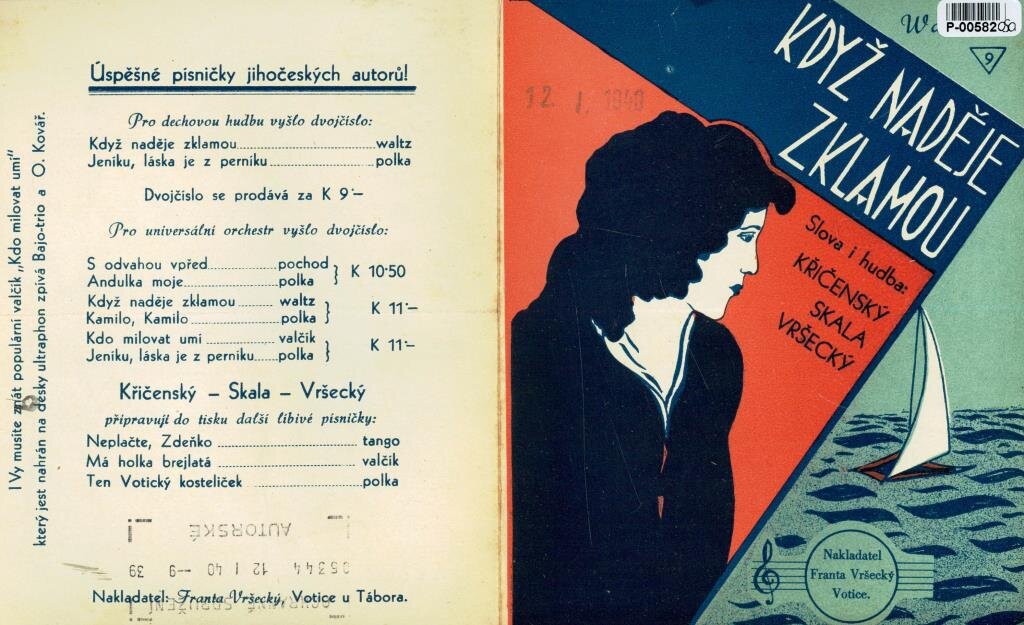 Úspěšné písničky jihočeských autorů!
Pro dechovou hudbu vyšlo dvojčíslo:
Když naděje zklamou waltz
Jeníku, láska je z perníku polka
Dvojčíslo se prodává za K 9·–
Pro universální orchestr vyšlo dvojčíslo:
S odvahou vpřed pochod
Andulka moje polka } K 10·50
Když naděje zklamou waltz
Kamilo, Kamilo polka } K 11·–
Kdo milovat umí valčík
Jeníku, láska je z perníku polka } K 11·–
Křičenský – Skala – Vršecký
připravují do tisku další líbivé písničky:
Neplačte, Zdeňko tango
Má holka brejlatá valčík
Ten Votický kosteliček polka
AUTORSKÉ
05344 12 I 40 –9 39
Nakladatel: Franta Vršecký, Votice u Tábora.
I Vy musíte znát populární valčík „Kdo milovat umí"
který jest nahrán na desky ultraphon zpívá Bajo-trio a O. Kovář.
P-00582
9
12. I. 1940
KDYŽ NADĚJE
ZKLAMOU
Slova i hudba:
KŘIČENSKÝ
SKALA
VRŠECKÝ
Nakladatel
Franta Vršecký
Votice.